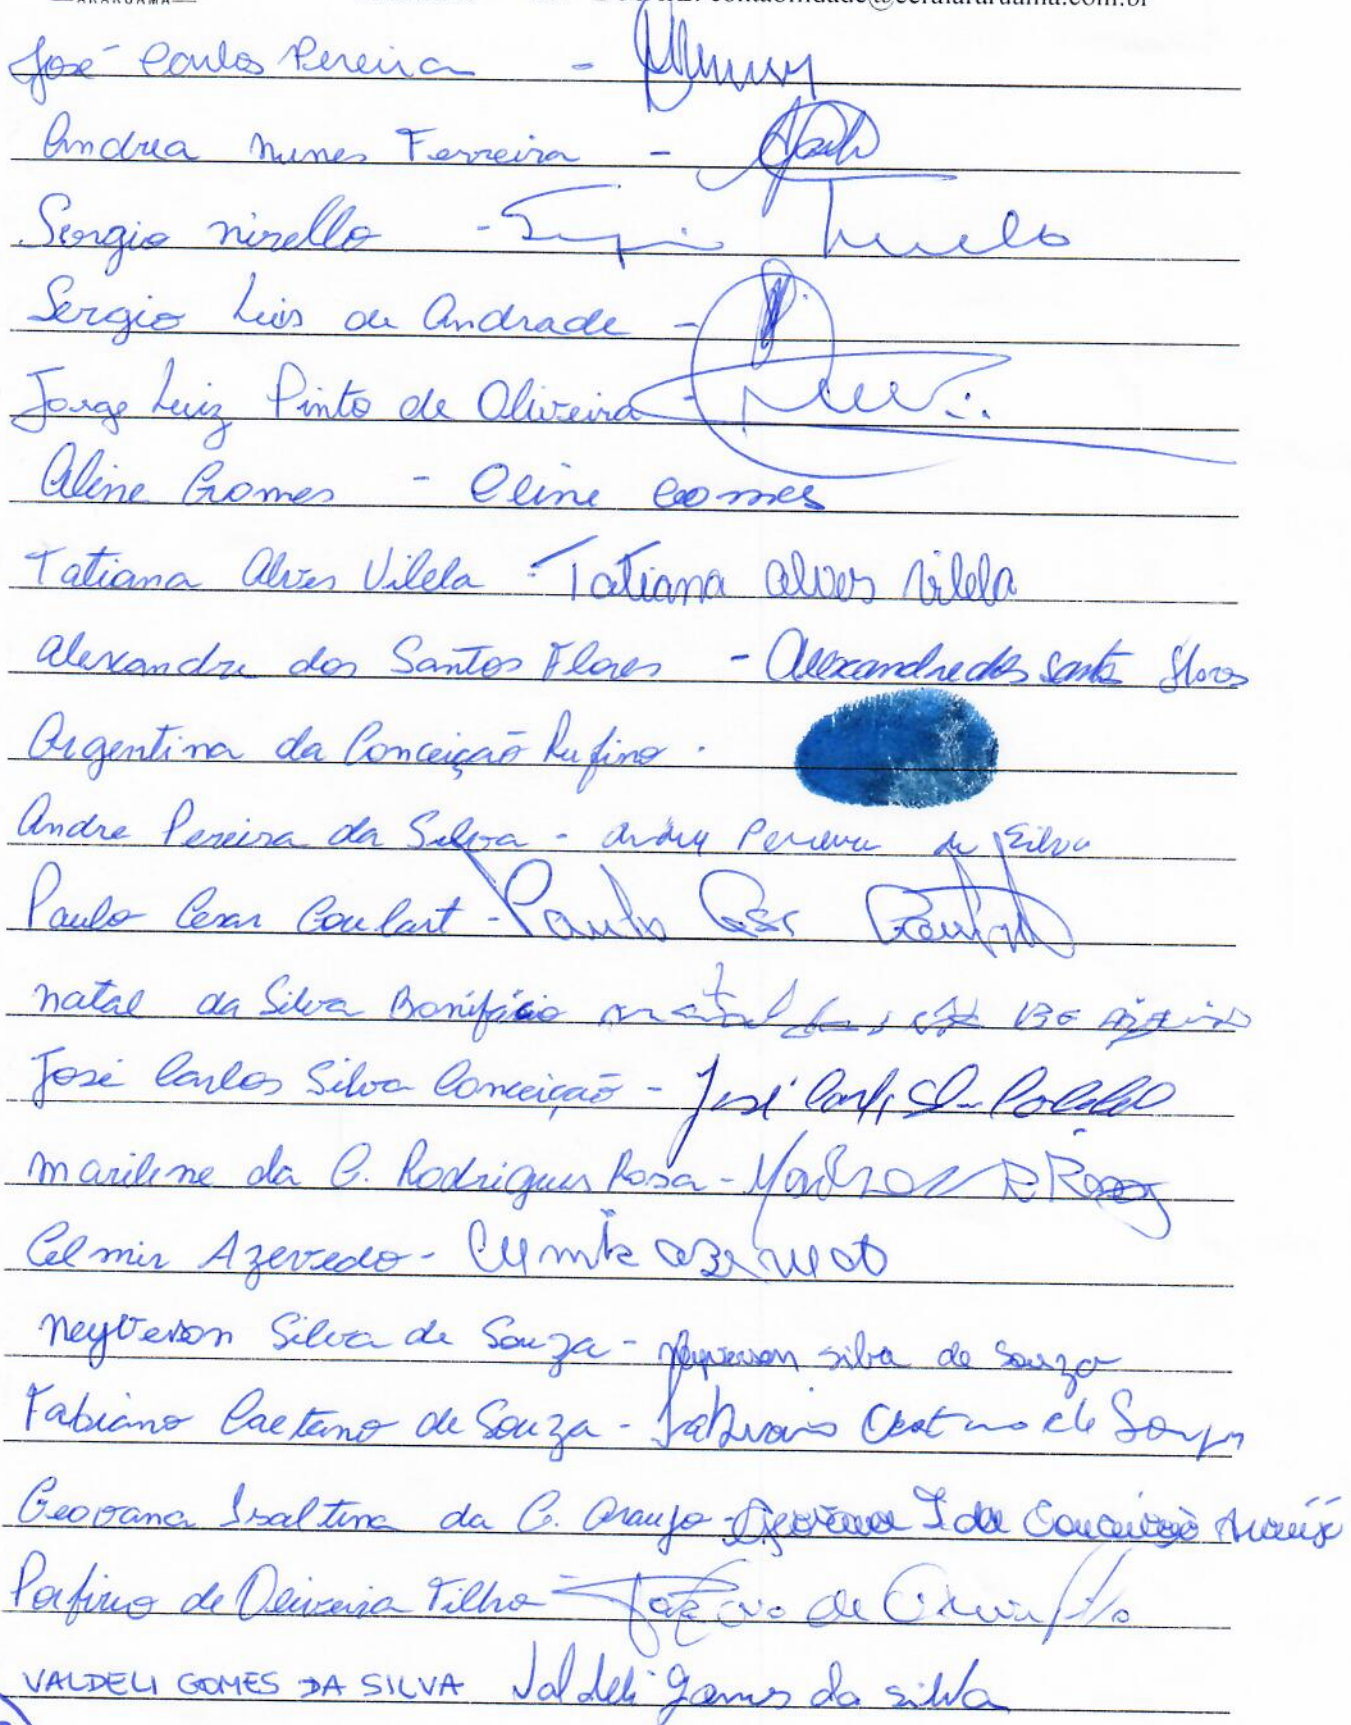 ARARUAMA contabilidade@ceralararuama.com.br
José Carlos Pereira -
Andrea nunes Ferreira -
Sergio nirello -
Sergio Luis de Andrade -
Jorge Luiz Pinto de Oliveira -
Aline Gomes - Aline Gomes
Tatiana Alves Vilela - Tatiana Alves Vilela
Alexandre dos Santos Flores - Alexandre dos Santos Flores
Argentina da Conceição Rufino -
Andre Pereira da Silva - Andre Pereira da Silva
Paulo Cesar Goulart - Paulo Cesar Goulart
natal da Silva Bonifácio
José Carlos Silva Conceição - José Carlos
marilene da C. Rodrigues Rosa -
Celmir Azevedo - Azevedo
neyverson Silva de Souza - neyverson silva de souza
Fabiano Caetano de Souza - Fabiano Caetano de Souza
Geovana Isaltina da C. Araujo - Geovana I da Conceição Araujo
Porfirio de Oliveira Filho - de Oliveira Filho
VALDELI GOMES DA SILVA Valdeli Gomes da silva